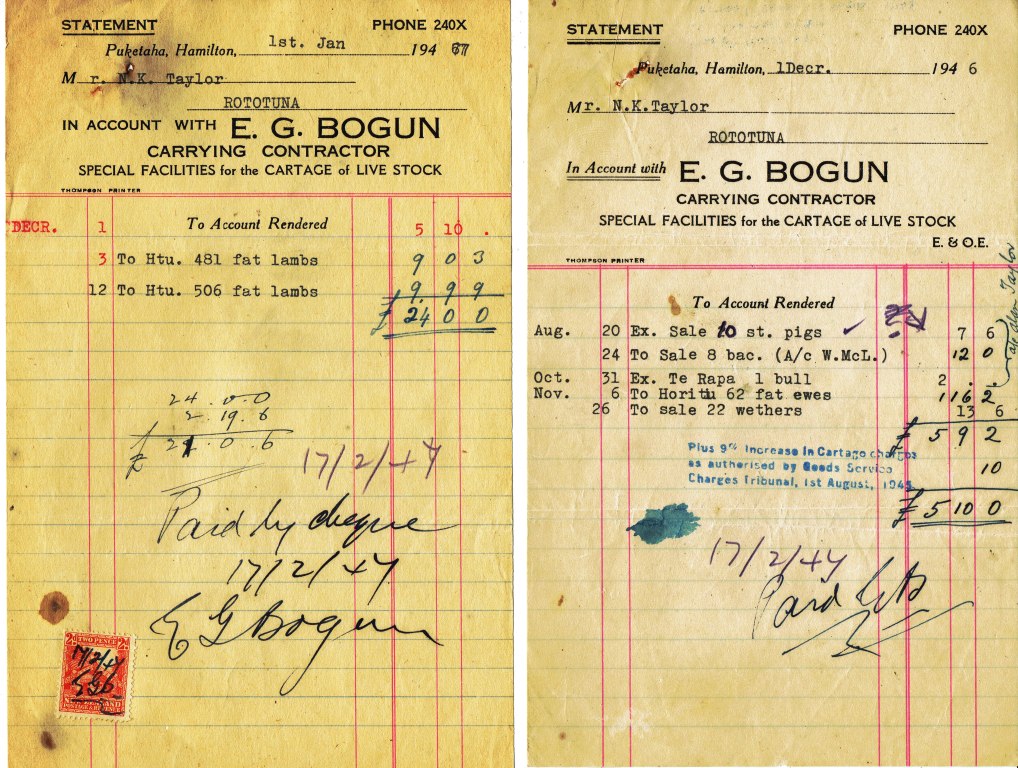 STATEMENT PHONE 240X
Puketaha, Hamilton, 1st. Jan 194 7
M r. N.K. Taylor
ROTOTUNA
IN ACCOUNT WITH E. G. BOGUN
CARRYING CONTRACTOR
SPECIAL FACILITIES for the CARTAGE of LIVE STOCK
THOMPSON PRINTER
DECR. 1 To Account Rendered 5 10 .
3 To Htu. 481 fat lambs 9 0 3
12 To Htu. 506 fat lambs 9 . 9 9
£ 24 0 0
24 . 0 . 0
2 . 19 . 6
£ 21 . 0 . 6
17/2/47
Paid by cheque
17/2/47
E G Bogun
2d TWO PENCE 2d
17/2/47
EGB
NEW ZEALAND
POSTAGE & REVENUE
STATEMENT PHONE 240X
Puketaha, Hamilton, 1Decr. 194 6
Mr. N.K.Taylor
ROTOTUNA
In Account with E. G. BOGUN
CARRYING CONTRACTOR
SPECIAL FACILITIES for the CARTAGE of LIVE STOCK
E. & O.E.
THOMPSON PRINTER
To Account Rendered
Aug. 20 Ex. Sale 10 st. pigs 7 6
24 To Sale 8 bac. (A/c W.McL.) 12 0
Oct. 31 Ex. Te Rapa 1 bull 2 . .
Nov. 6 To Horitu 62 fat ewes 1 16 2
26 To sale 22 wethers 13 6
Taylor
£ 5 9 2
Plus 9% Increase in Cartage charges
as authorised by Goods Service
Charges Tribunal, 1st August, 194
10
£ 5 10 0
17/2/47
Paid EGB